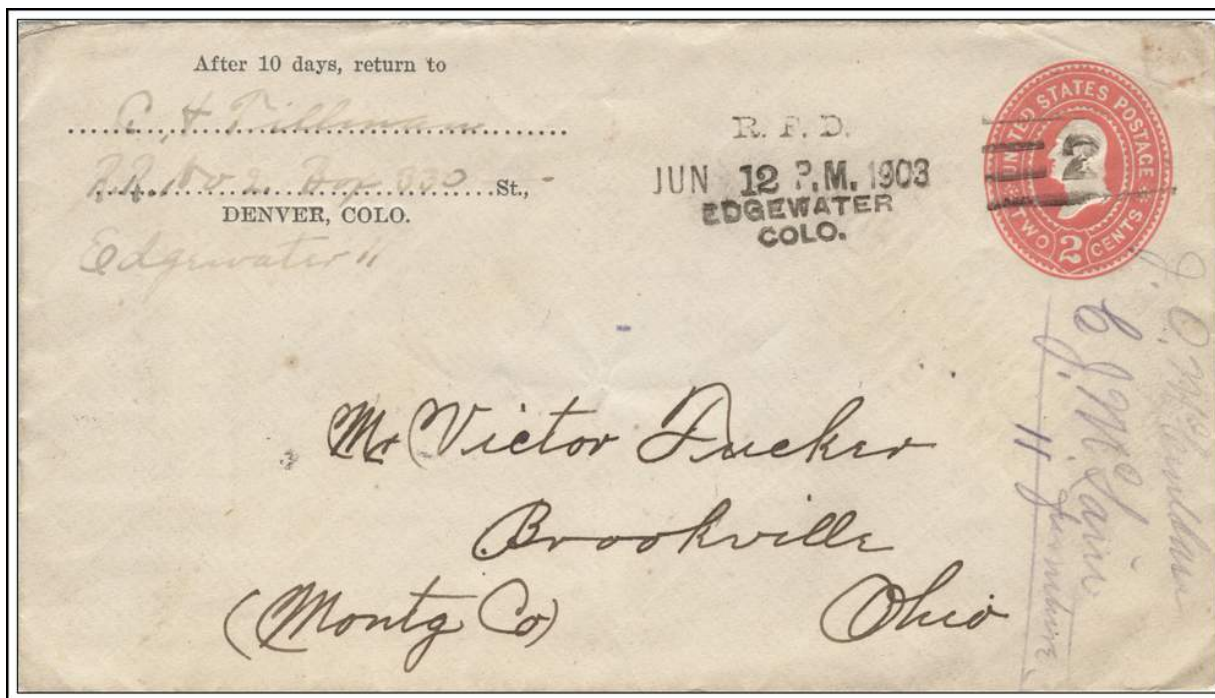 After 10 days, return to
C. H. Tillman
R.R. No 2. Box 330 St.,
DENVER, COLO.
Edgewater "
R. F. D.
JUN 12 P.M. 1903
EDGEWATER
COLO.
UNITED STATES POSTAGE
2
TWO 2 CENTS
Mr Victor Tucker
Brookville
(Montg Co) Ohio
C. J. McLain
11